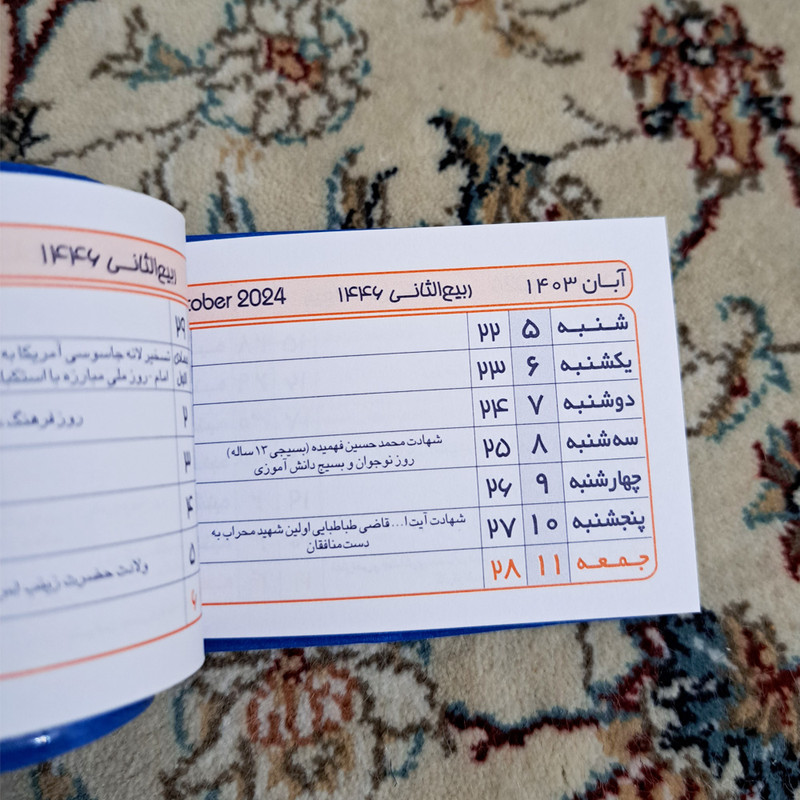 آبان ۱۴۰۳ ربیع‌الثانی ۱۴۴۶ tober 2024
شنبه ۵ ۲۲
یکشنبه ۶ ۲۳
دوشنبه ۷ ۲۴
سه‌شنبه ۸ ۲۵ شهادت محمد حسین فهمیده (بسیجی ۱۳ ساله)
روز نوجوان و بسیج دانش آموزی
چهارشنبه ۹ ۲۶
پنجشنبه ۱۰ ۲۷ شهادت آیت ا... قاضی طباطبایی اولین شهید محراب به
دست منافقان
جمعه ۱۱ ۲۸
ربیع‌الثانی ۱۴۴۶
۲۹
تسخیر لانه جاسوسی آمریکا به
امام - روز ملی مبارزه با
۲ روز فرهنگ
۳
۴
۵ ولادت حضرت زینب
۶